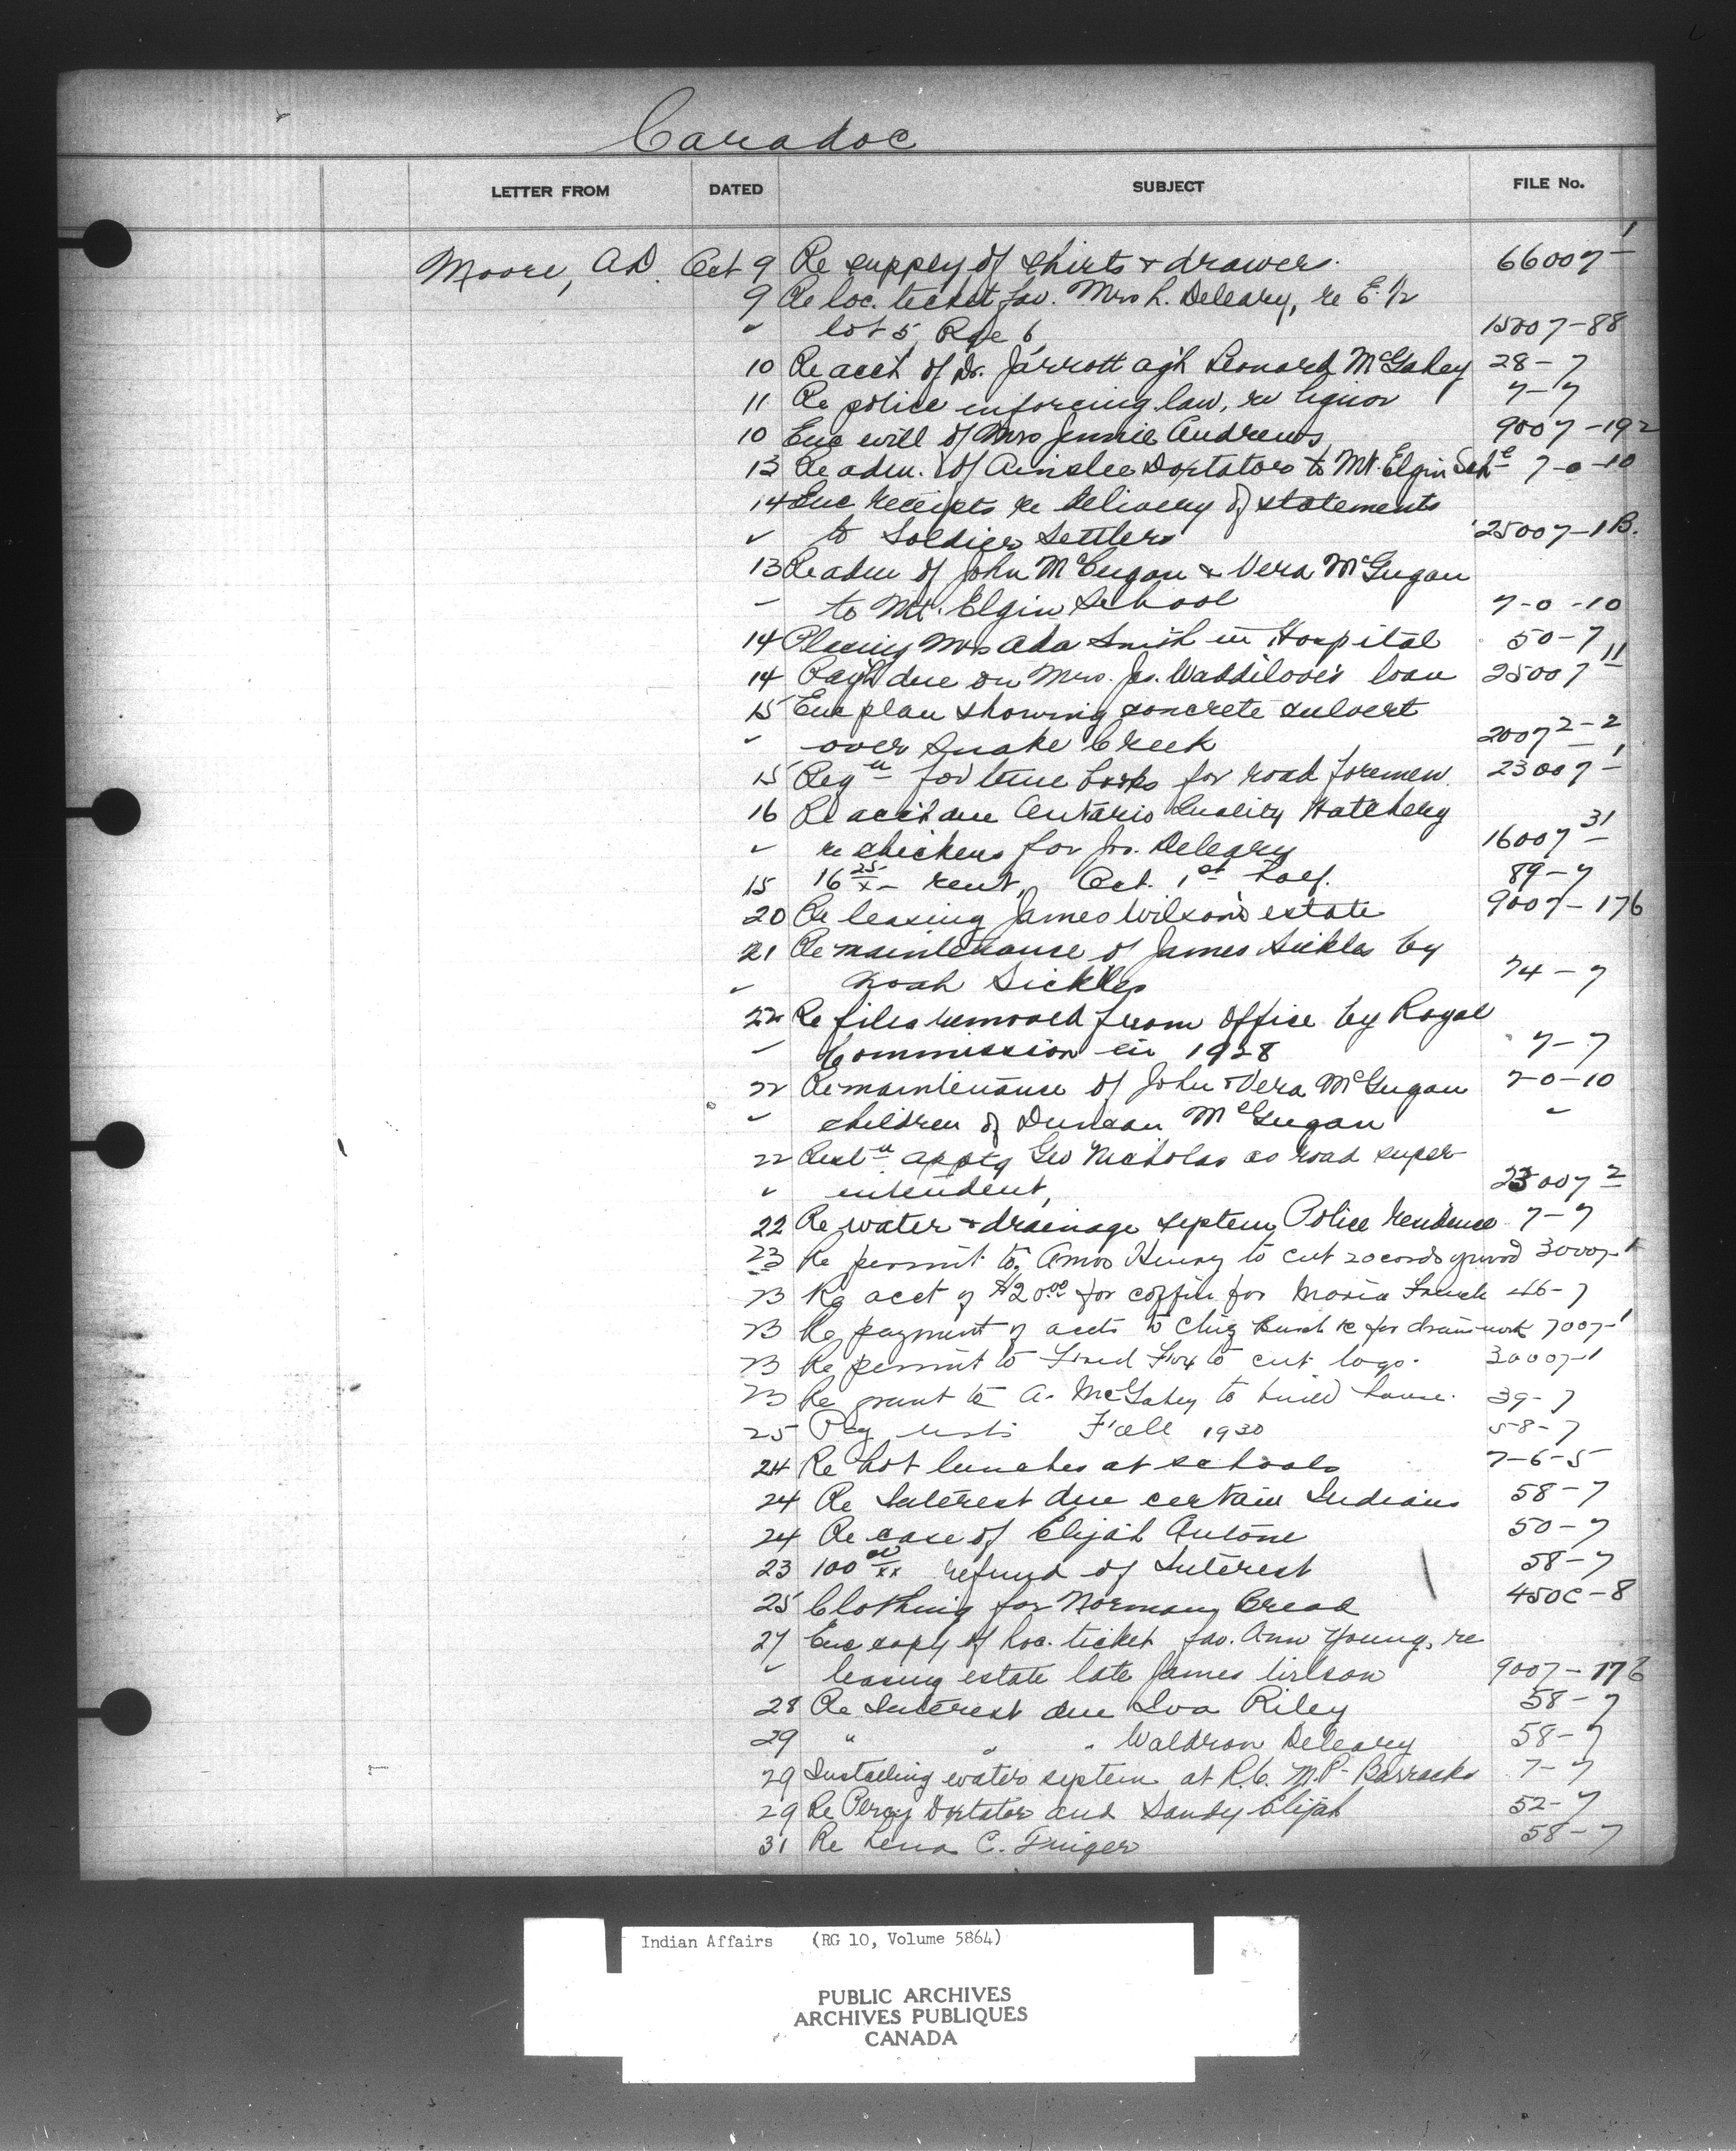 Caradoc
LETTER FROM DATED SUBJECT FILE No.
Moore, A.D. Oct 9 Re supply of shirts & drawers. 66007-1
9 Re loc. ticket fav. Mrs L. Deleary, re E. 1/2
" lot 5, Rge 6, 15007-88
10 Re acct of Dr. Jarrott agst Leonard McGahey 28-7
11 Re police enforcing law, re liquor 7-7
10 Enc will of Mrs Jennie Andrews 9007-192
13 Re adm. of Ainslee Doxtator to Mt. Elgin Schl 7-0-10
14 Enc receipts re delivery of statements
" to Soldier Settlers 25007-1B.
13 Re adm of John McGugan & Vera McGugan
" to Mt. Elgin School 7-0-10
14 Placing Mrs Ada Smith in Hospital 50-7
14 Paymt due on Mrs. Jas. Waddilove's loan 25007-11
15 Enc plan showing concrete culvert
" over Snake Creek 20072-2
15 Reqn for time books for road foremen. 23007-1
16 Re acct due Ontario Quality Hatchery
" re chickens for Jos. Deleary 16007-31
15 16 25/x rent, Oct. 1st half. 89-7
20 Re leasing James Wilson's estate 9007-176
21 Re maintenance of James Sickles by
" Noah Sickles 74-7
22 Re files removed from office by Royal
" Commission in 1928 7-7
22 Re maintenance of John & Vera McGugan 7-0-10
" children of Duncan McGugan "
22 Resln apptg Geo Nicholas as road super-
" intendent, 23007-2
22 Re water & drainage system, Police residence 7-7
23 Re permit to Amos Henry to cut 20 cords wood 30007-1
23 Re acct of $20.00 for coffin for Maria French 46-7
23 Re payment of accts to Chig for drain work 7007-1
23 Re permit to Fred Fox to cut logs. 30007-1
23 Re grant to A. McGahey to build house. 39-7
25 Pay lists Fall 1930 58-7
24 Re hot lunches at schools 7-6-5
24 Re Interest due certain Indians 58-7
24 Re case of Elijah Antone 50-7
23 100 00/xx refund of Interest 58-7
25 Clothing for Norman Bread 450C-8
27 Enc copy of loc. ticket fav. Ann Young, re
" leasing estate late James Wilson 9007-176
28 Re Interest due Iva Riley 58-7
29 " " " Waldron Deleary 58-7
29 Installing water system at R.C.M.P. Barracks 7-7
29 Re Percy Doxtator and Sandy Elijah 52-7
31 Re Lena C. Finger 58-7
Indian Affairs (RG 10, Volume 5864)
PUBLIC ARCHIVES
ARCHIVES PUBLIQUES
CANADA